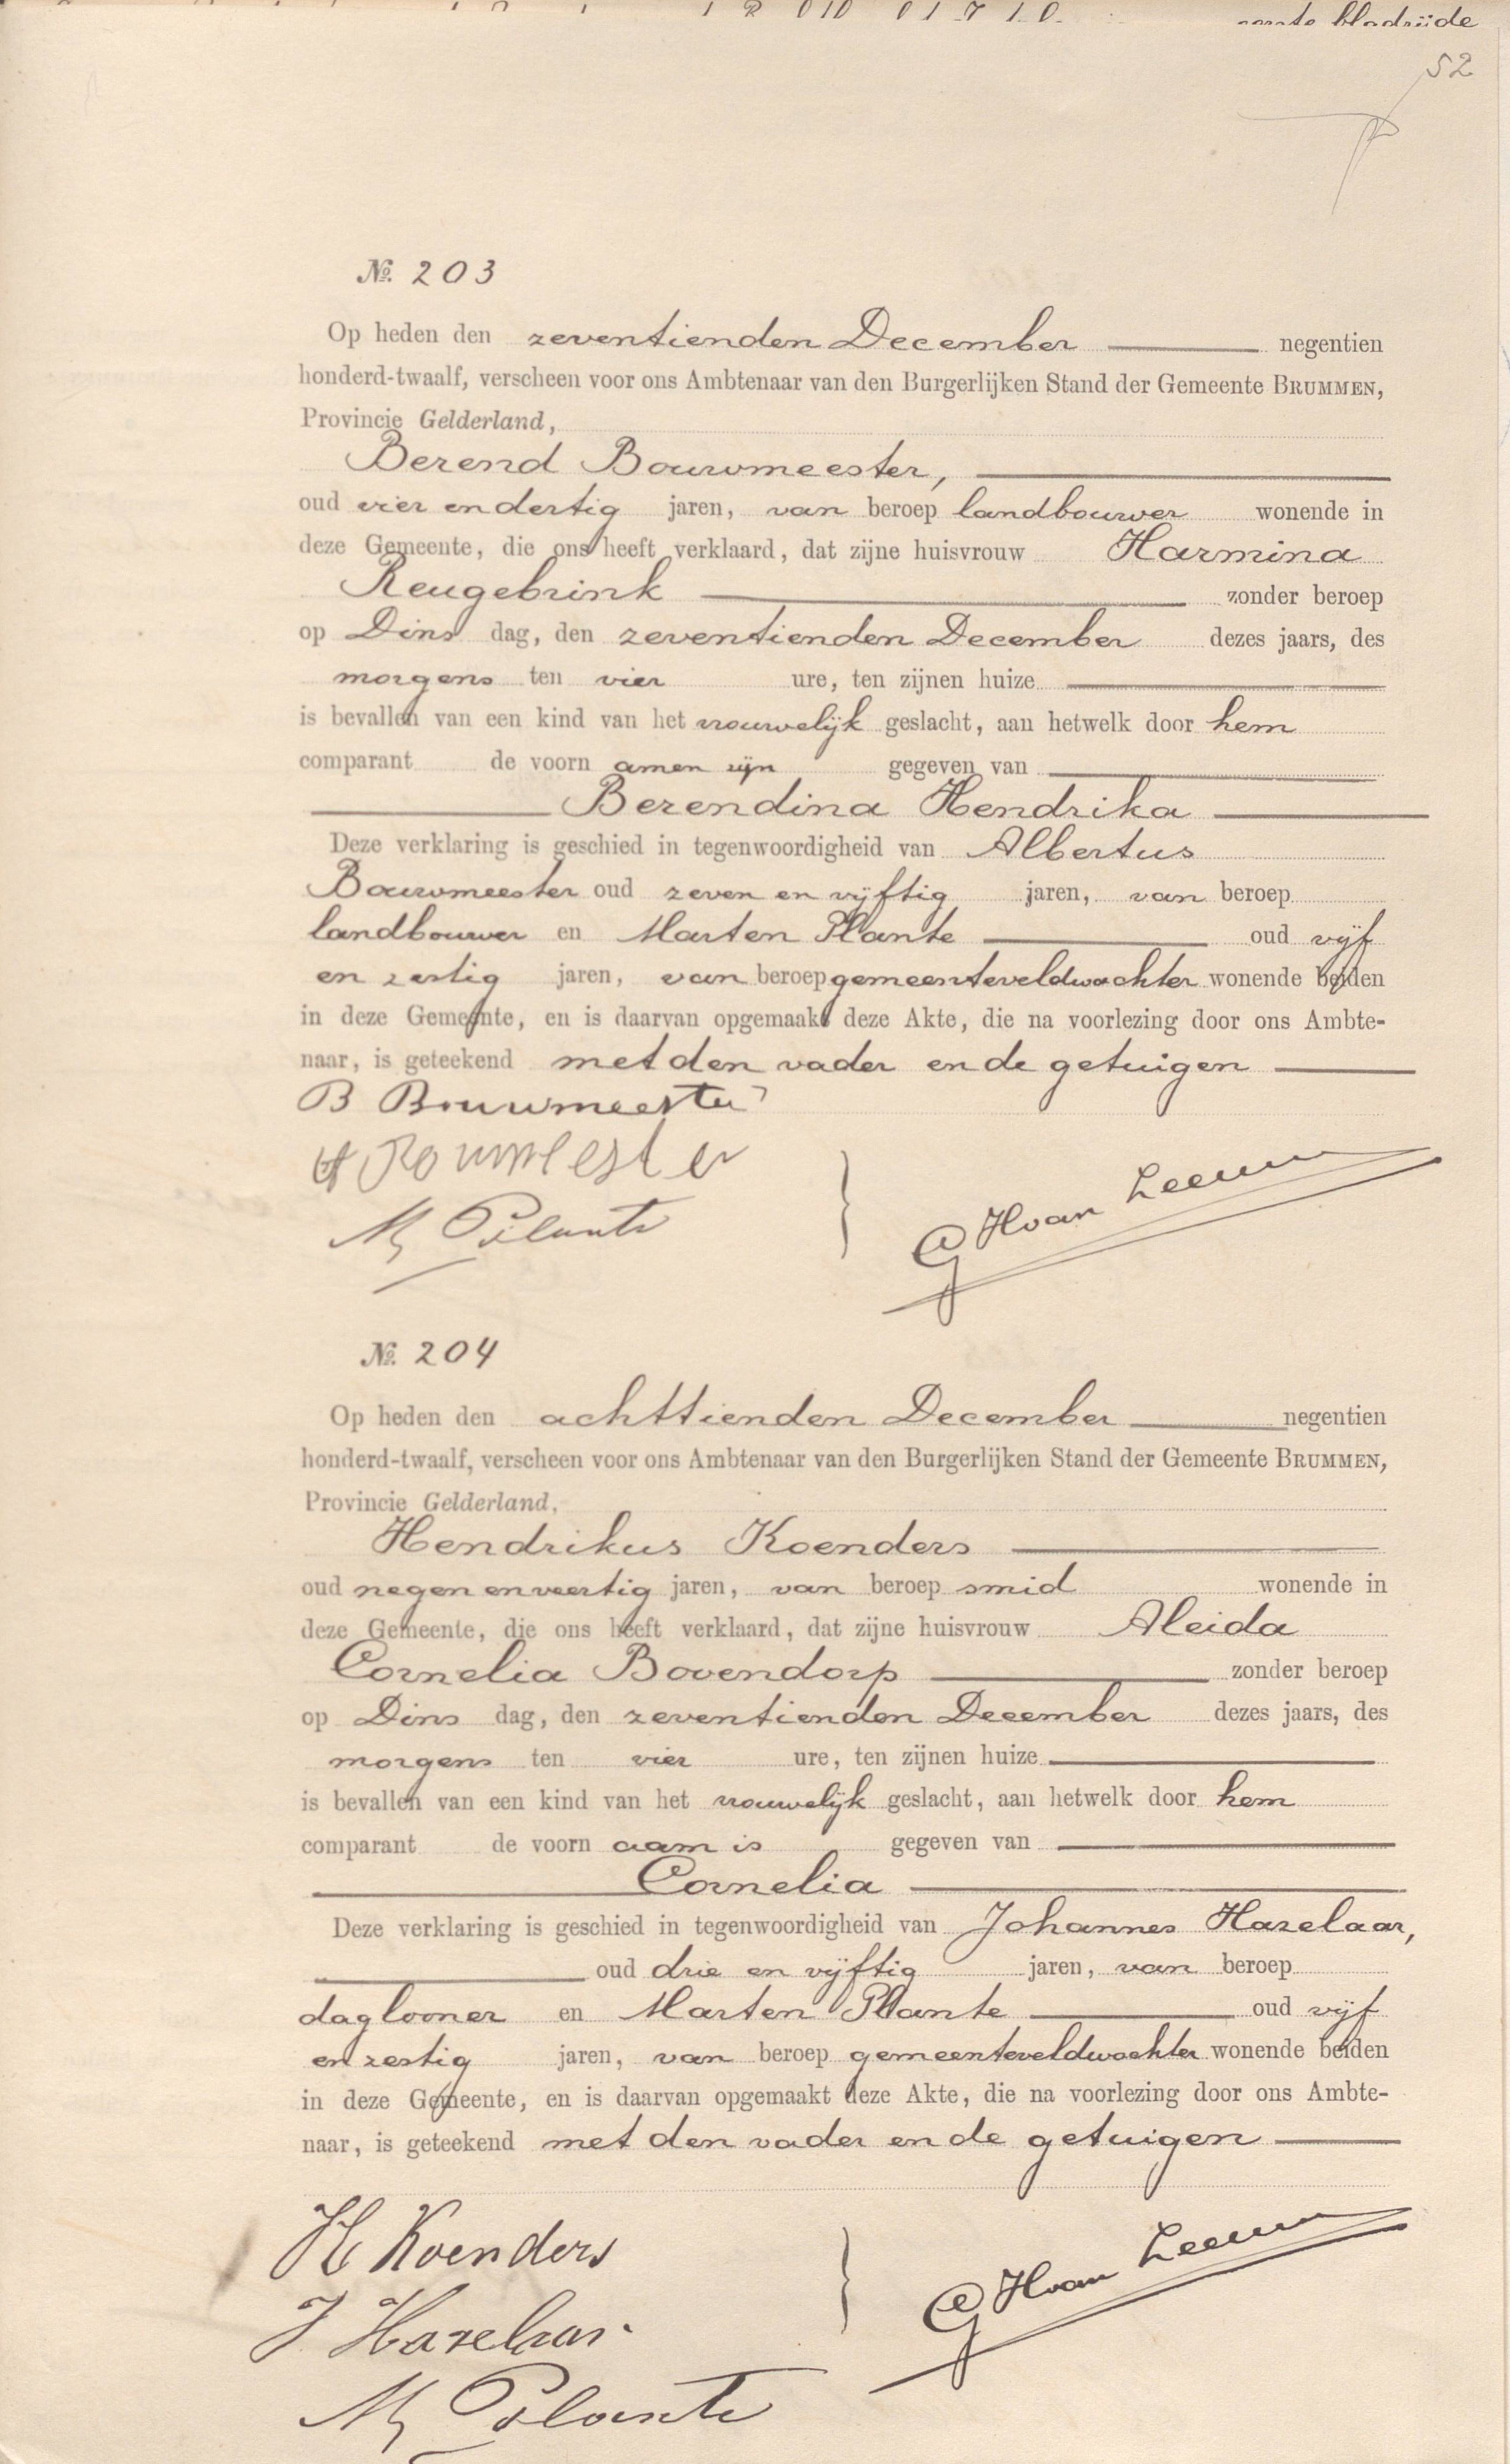 eerste bladzijde
52
№. 203
Op heden den zeventienden December negentien
honderd-twaalf, verscheen voor ons Ambtenaar van den Burgerlijken Stand der Gemeente BRUMMEN,
Provincie Gelderland,
Berend Bouwmeester,
oud vier en dertig jaren, van beroep landbouwer wonende in
deze Gemeente, die ons heeft verklaard, dat zijne huisvrouw Harmina
Reugebrink zonder beroep
op Dins dag, den zeventienden December dezes jaars, des
morgens ten vier ure, ten zijnen huize
is bevallen van een kind van het vrouwelijk geslacht, aan hetwelk door hem
comparant de voorn amen zijn gegeven van
Berendina Hendrika
Deze verklaring is geschied in tegenwoordigheid van Albertus
Bouwmeester oud zeven en vijftig jaren, van beroep
landbouwer en Marten Plante oud vijf
en zestig jaren, van beroep gemeenteveldwachter wonende beiden
in deze Gemeente, en is daarvan opgemaakt deze Akte, die na voorlezing door ons Ambte-
naar, is geteekend met den vader en de getuigen
B Bouwmeester
A Bouwmeester
M Plante
G H van Leeuwen
№. 204
Op heden den achttienden December negentien
honderd-twaalf, verscheen voor ons Ambtenaar van den Burgerlijken Stand der Gemeente BRUMMEN,
Provincie Gelderland,
Hendrikus Koenders
oud negen en veertig jaren, van beroep smid wonende in
deze Gemeente, die ons heeft verklaard, dat zijne huisvrouw Aleida
Cornelia Bovendorp zonder beroep
op Dins dag, den zeventienden December dezes jaars, des
morgens ten vier ure, ten zijnen huize
is bevallen van een kind van het vrouwelijk geslacht, aan hetwelk door hem
comparant de voorn aam is gegeven van
Cornelia
Deze verklaring is geschied in tegenwoordigheid van Johannes Hazelaar,
oud drie en vijftig jaren, van beroep
daglooner en Marten Plante oud vijf
en zestig jaren, van beroep gemeenteveldwachter wonende beiden
in deze Gemeente, en is daarvan opgemaakt deze Akte, die na voorlezing door ons Ambte-
naar, is geteekend met den vader en de getuigen
H Koenders
J Hazelaar
M Plante
G H van Leeuwen